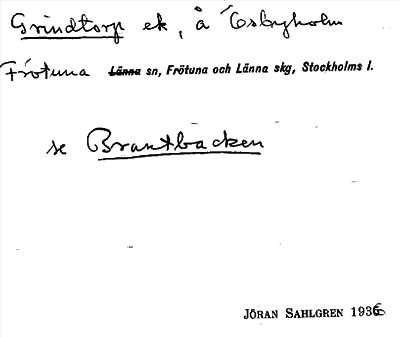 Grindtorp ek, å Össbyholm
Frötuna Länna sn, Frötuna och Länna skg, Stockholms l.
se Brantbacken
JÖRAN SAHLGREN 1936